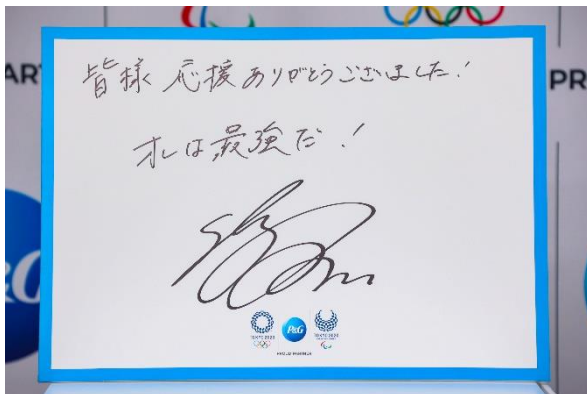 皆様 応援ありがとうございました!
オレは最強だ!
P&G
TOKYO 2020
TOKYO 2020